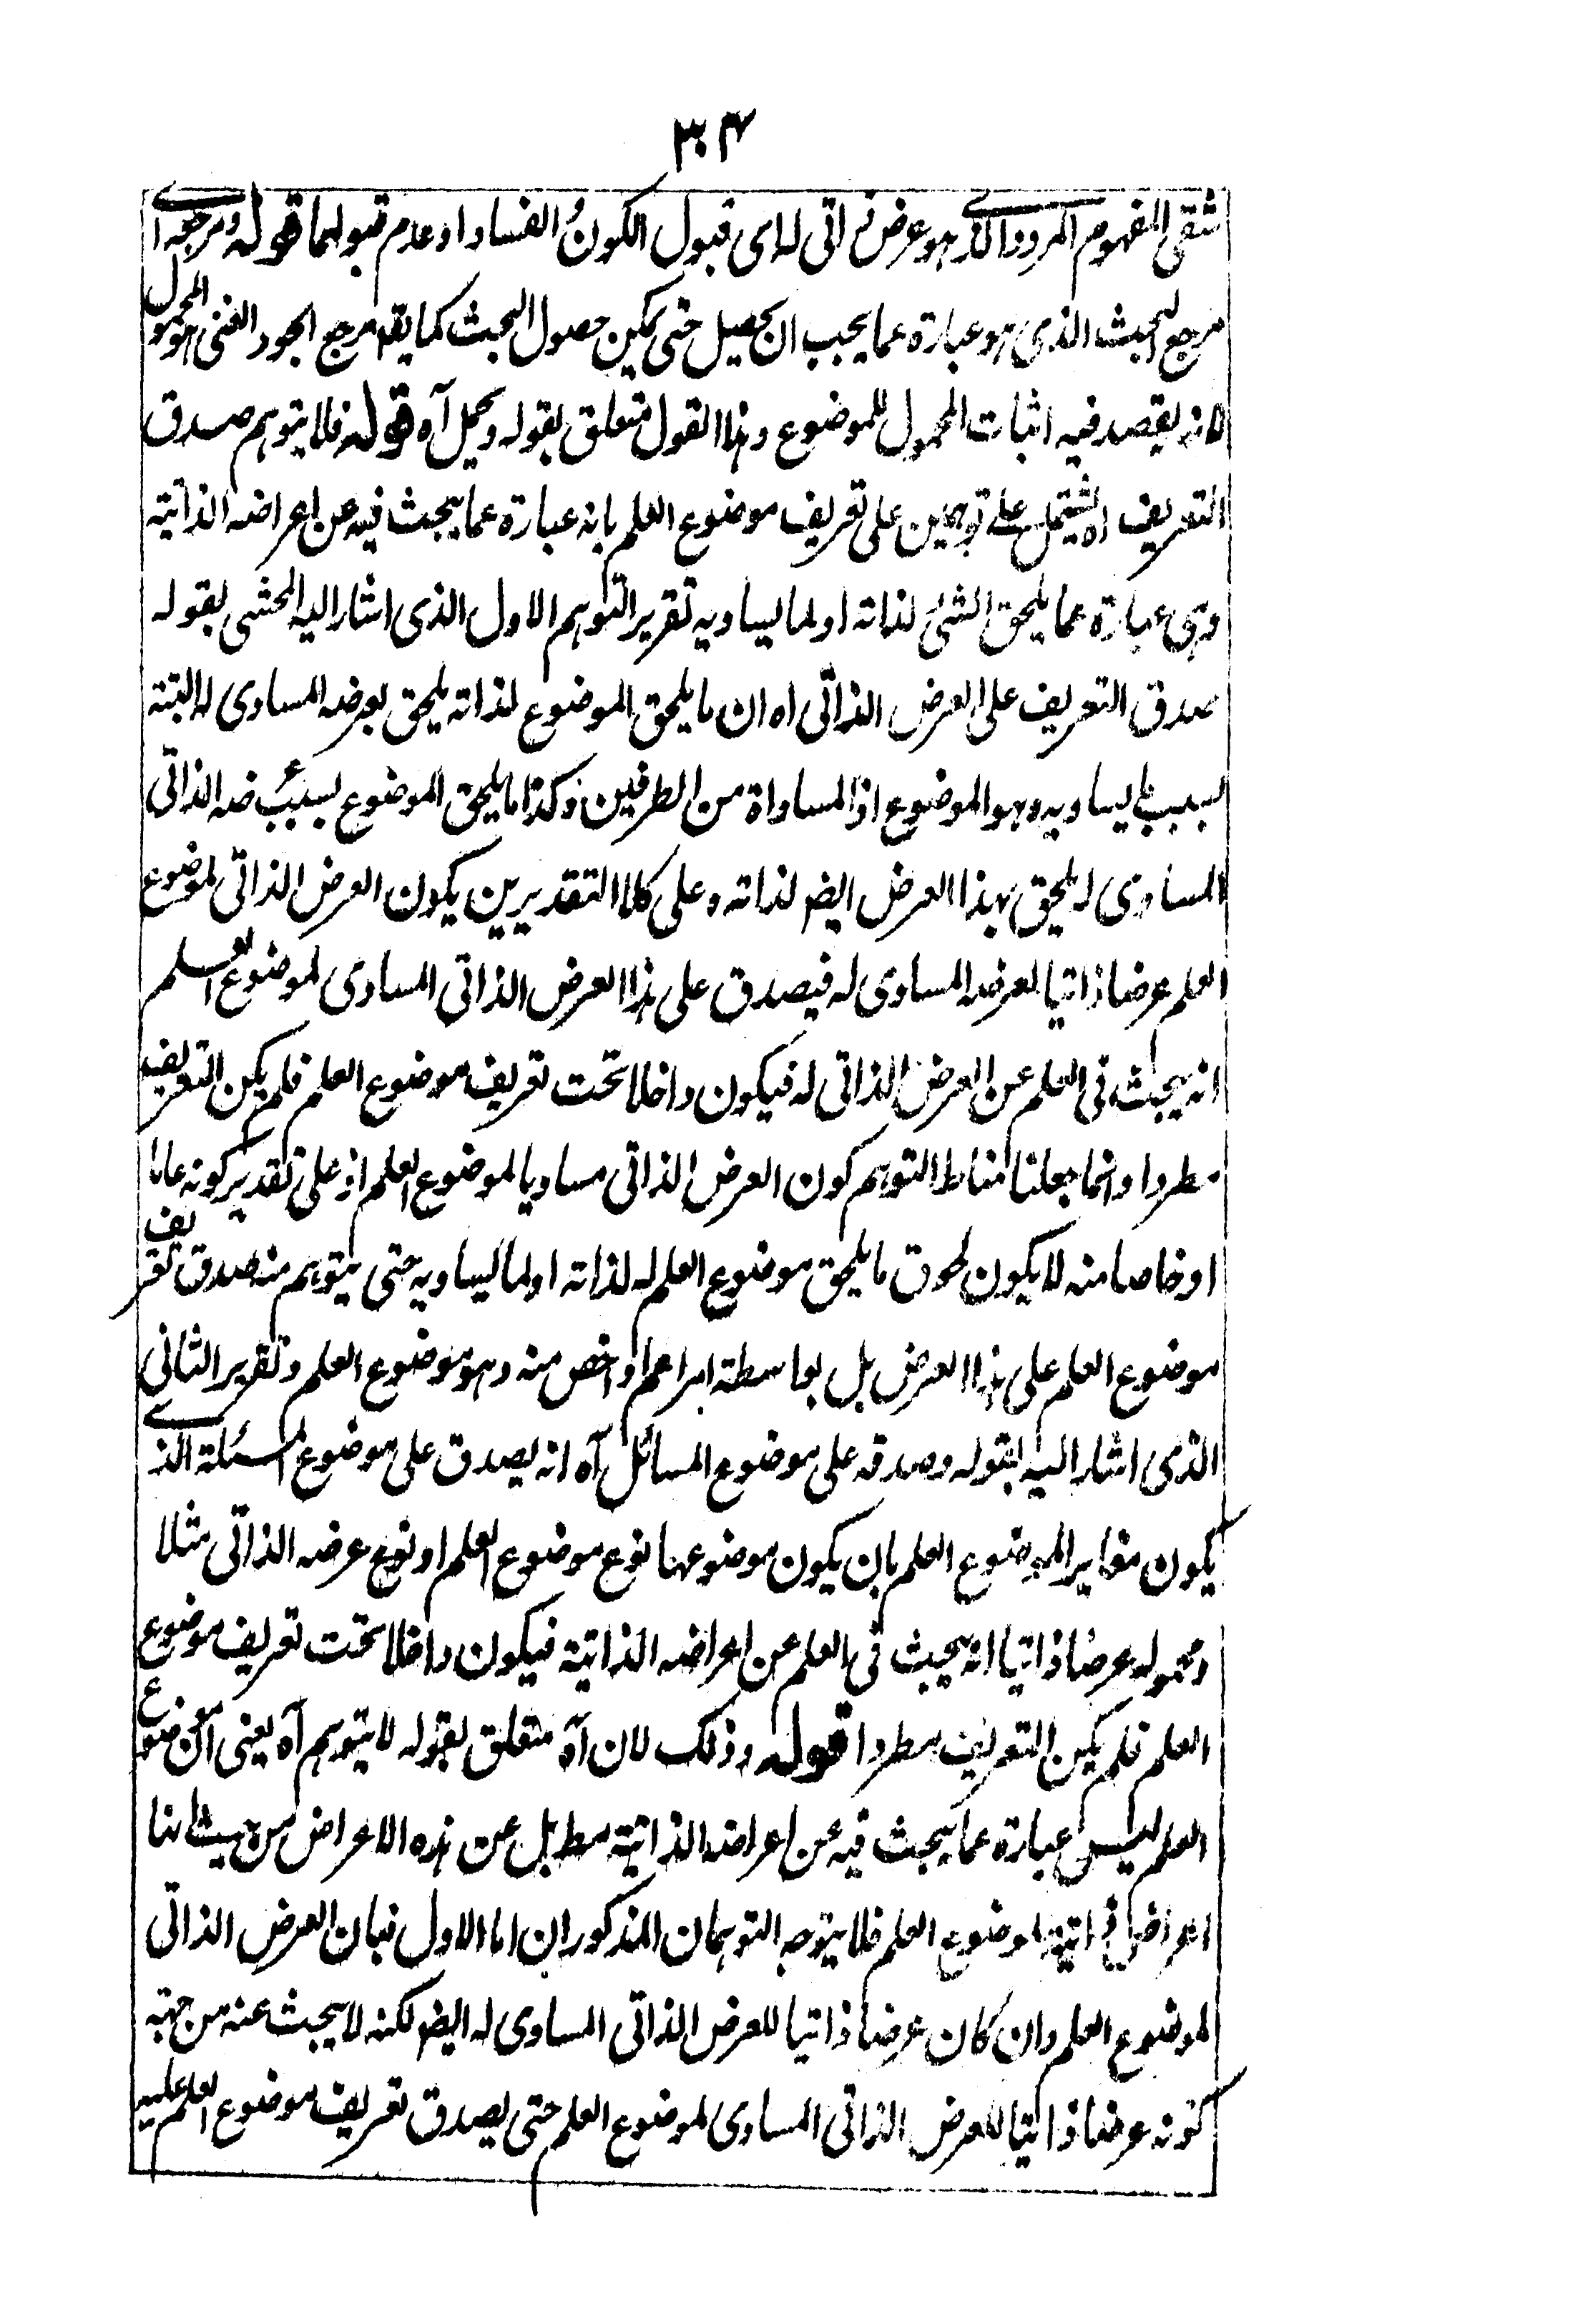 ٣٠٤
شقى المفهوم المردد الذى هو عرض ذاتى له اى قبول الكون و الفساد او عدم قبولهما قوله ومرجعه اى
مرجع البحث الذى هو عبارة عما يجب ان يحصل حتى يمكن حصول البحث كما يقه مرجع الجود الغنى هو المحمول
لانه يقصد فيه اثبات المحمول للموضوع وهذا القول متعلق بقوله ويحمل آه قوله فلا يتوهم صدق
التعريف اه يشتمل على توهمين على تعريف موضوع العلم بانه عبارة عما يبحث فيه عن اعراضه الذاتية
وهى عبارة عما يلحق الشئ لذاته او لما يساويه تقرير التوهم الاول الذى اشار اليه المحشى بقوله
صدق التعريف على العرض الذاتى اه ان ما يلحق الموضوع لذاته يلحق بعرضه المساوى له البتة
بسبب ما يساويه وهو الموضوع اذ المساواة من الطرفين وكذا ما يلحق الموضوع بسبب عرضه الذاتى
المساوى له يلحق بهذا العرض ايضا لذاته وعلى كلا التقديرين يكون العرض الذاتى لموضوع
العلم عرضا ذاتيا لعرضه المساوى له فيصدق على هذا العرض الذاتى المساوى لموضوع العلم
انه يبحث فى العلم عن العرض الذاتى له فيكون داخلا تحت تعريف موضوع العلم فلم يكن التعريف
مطردا وانما جعلنا مناط التوهم كون العرض الذاتى مساويا لموضوع العلم اذ على تقدير كونه عاما
او خاصا منه لا يكون لحوق ما يلحق موضوع العلم له لذاته او لما يساويه حتى يتوهم منه صدق تعريف
موضوع العلم على هذا العرض بل بواسطة امر اعم او اخص منه وهو موضوع العلم وتقرير الثانى
الذى اشار اليه بقوله وصدقه على موضوع المسائل آه انه يصدق على موضوع المسئلة الذى
يكون مغايرا لموضوع العلم بان يكون موضوعها نوع موضوع العلم او نوع عرضه الذاتى مثلا
ومحموله عرضا ذاتيا انه يبحث فى العلم عن اعراضه الذاتية فيكون داخلا تحت تعريف موضوع
العلم فلم يكن التعريف مطردا قوله وذلك لان آه متعلق بقوله لا يتوهم آه يعنى ان موضوع
العلم ليس عبارة عما يبحث فيه عن اعراضه الذاتية مط بل عن هذه الاعراض من حيث انها
اعراض ذاتية لموضوع العلم فلا يتوجه التوهمان المذكوران اما الاول فبان العرض الذاتى
لموضوع العلم وان كان عرضا ذاتيا للعرض الذاتى المساوى له ايضا لكنه لا يبحث عنه من جهة
كونه عرضا ذاتيا للعرض الذاتى المساوى لموضوع العلم حتى يصدق تعريف موضوع العلم عليه